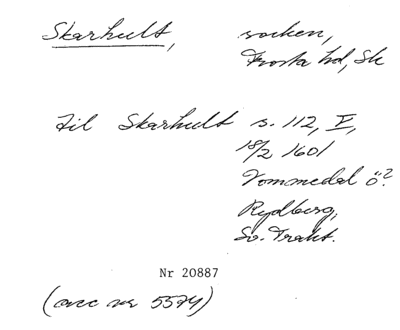 Skarhult, socken,
Frosta hd, Sk
til Skarhult s. 112, V,
18/2 1601
Vommedal ö?
Rydberg,
Sv. Trakt.
Nr 20887
(acc nr 5574)